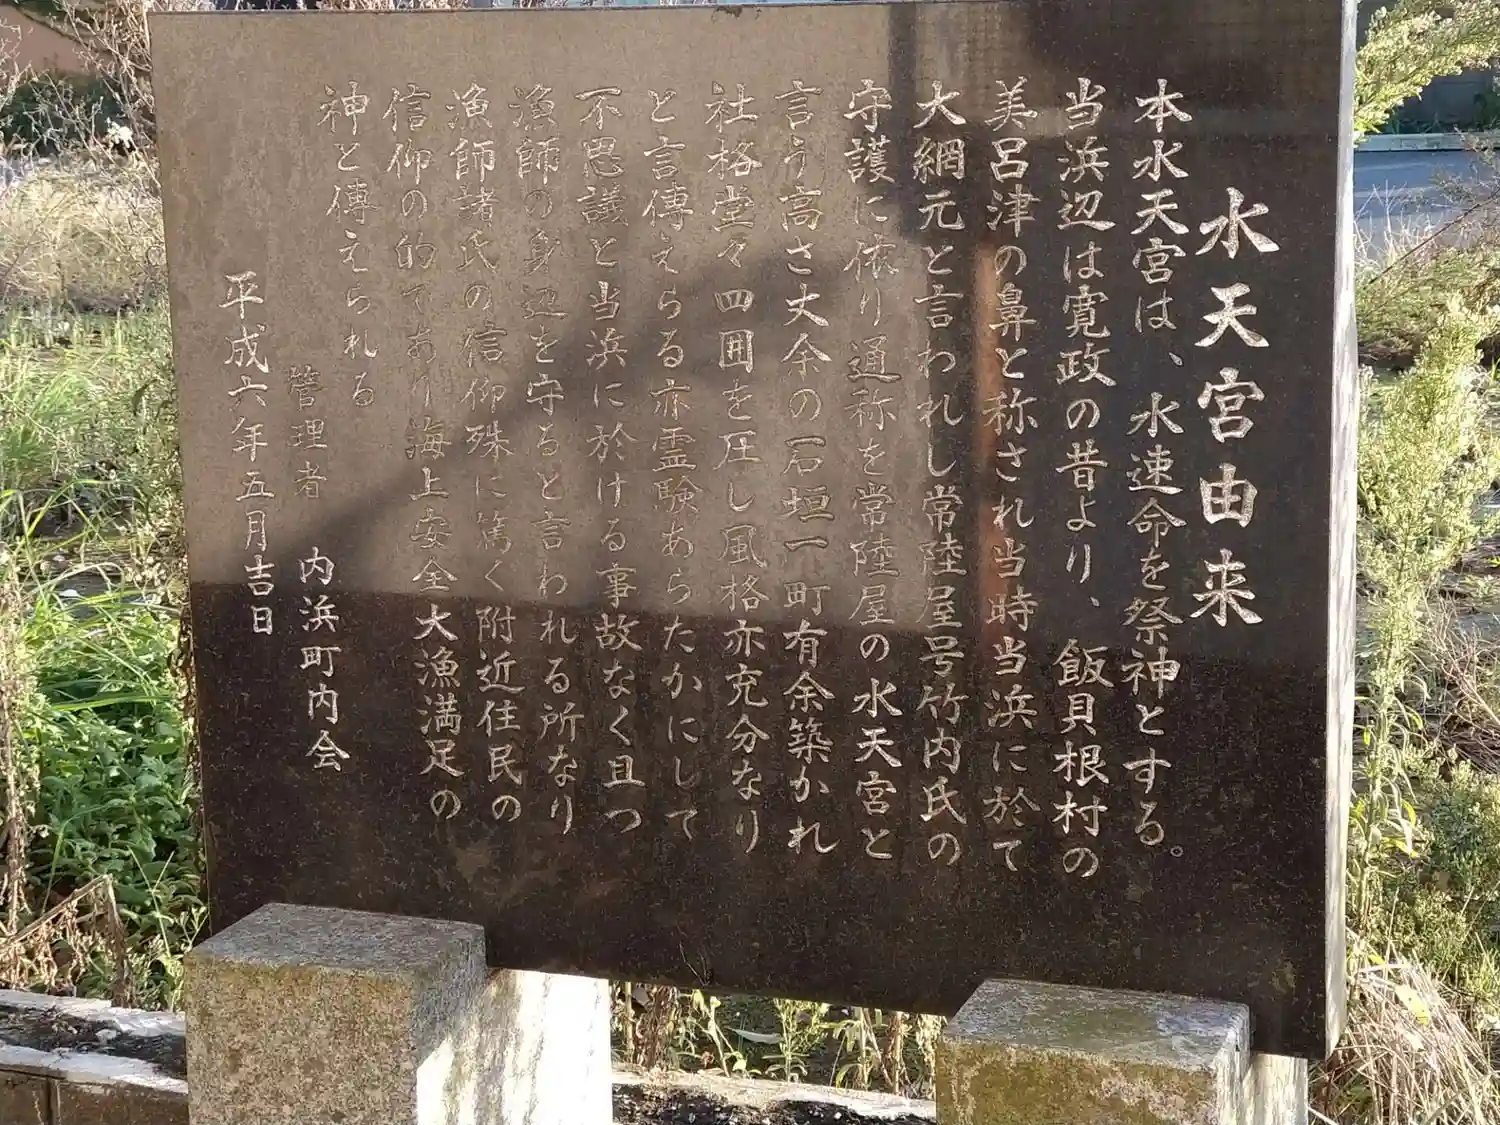 水天宮由来
本水天宮は、水速命を祭神とする。
当浜辺は寛政の昔より、飯貝根村の
美呂津の鼻と称され当時当浜に於て
大網元と言われし常陸屋号竹内氏の
守護に依り通称を常陸屋の水天宮と
言う高さ丈余の石垣一町有余築かれ
社格堂々四囲を圧し風格亦充分なり
と言傳えらる亦霊験あらたかにして
不思議と当浜に於ける事故なく且つ
漁師の身辺を守ると言われる所なり
漁師諸氏の信仰殊に篤く附近住民の
信仰の的であり海上安全大漁満足の
神と傳えられる
管理者 内浜町内会
平成六年五月吉日